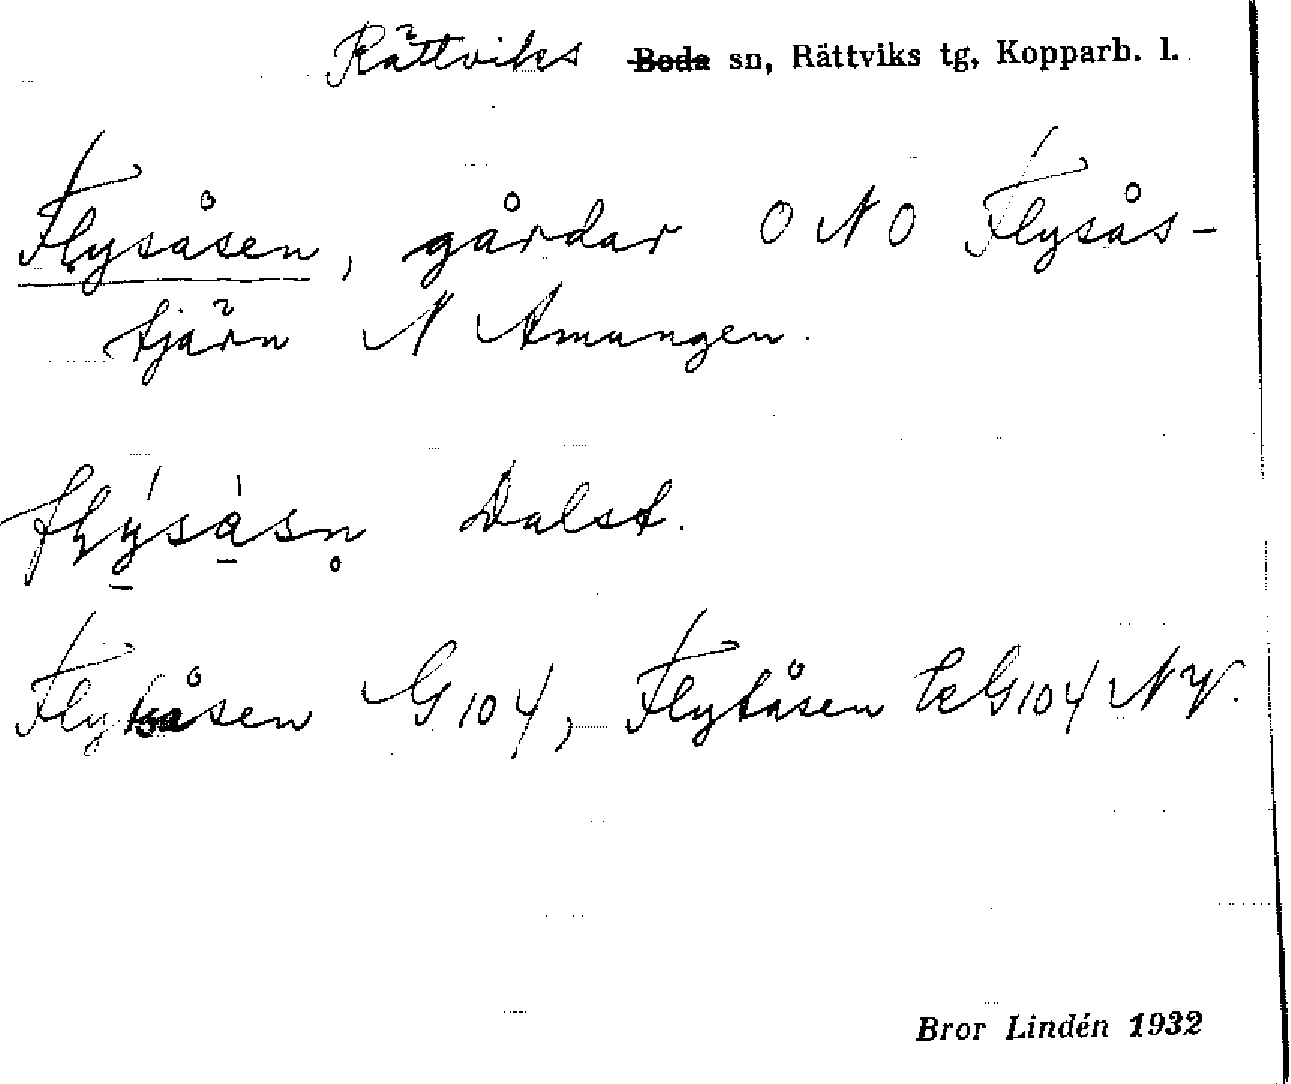 Rättviks Boda sn, Rättviks tg, Kopparb. l.
Flysåsen, gårdar ONO Flysås-
tjärn N Amungen.
flýsàsn̥ Dalst.
Flytåsen G104, Flytåsen G104 NV.
Bror Lindén 1932